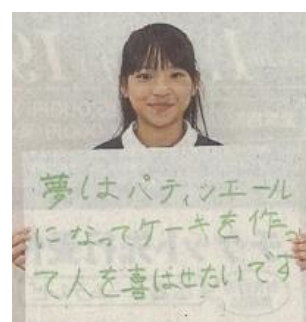 夢はパティツエール
になってケーキを作っ
て人を喜ばせたいです